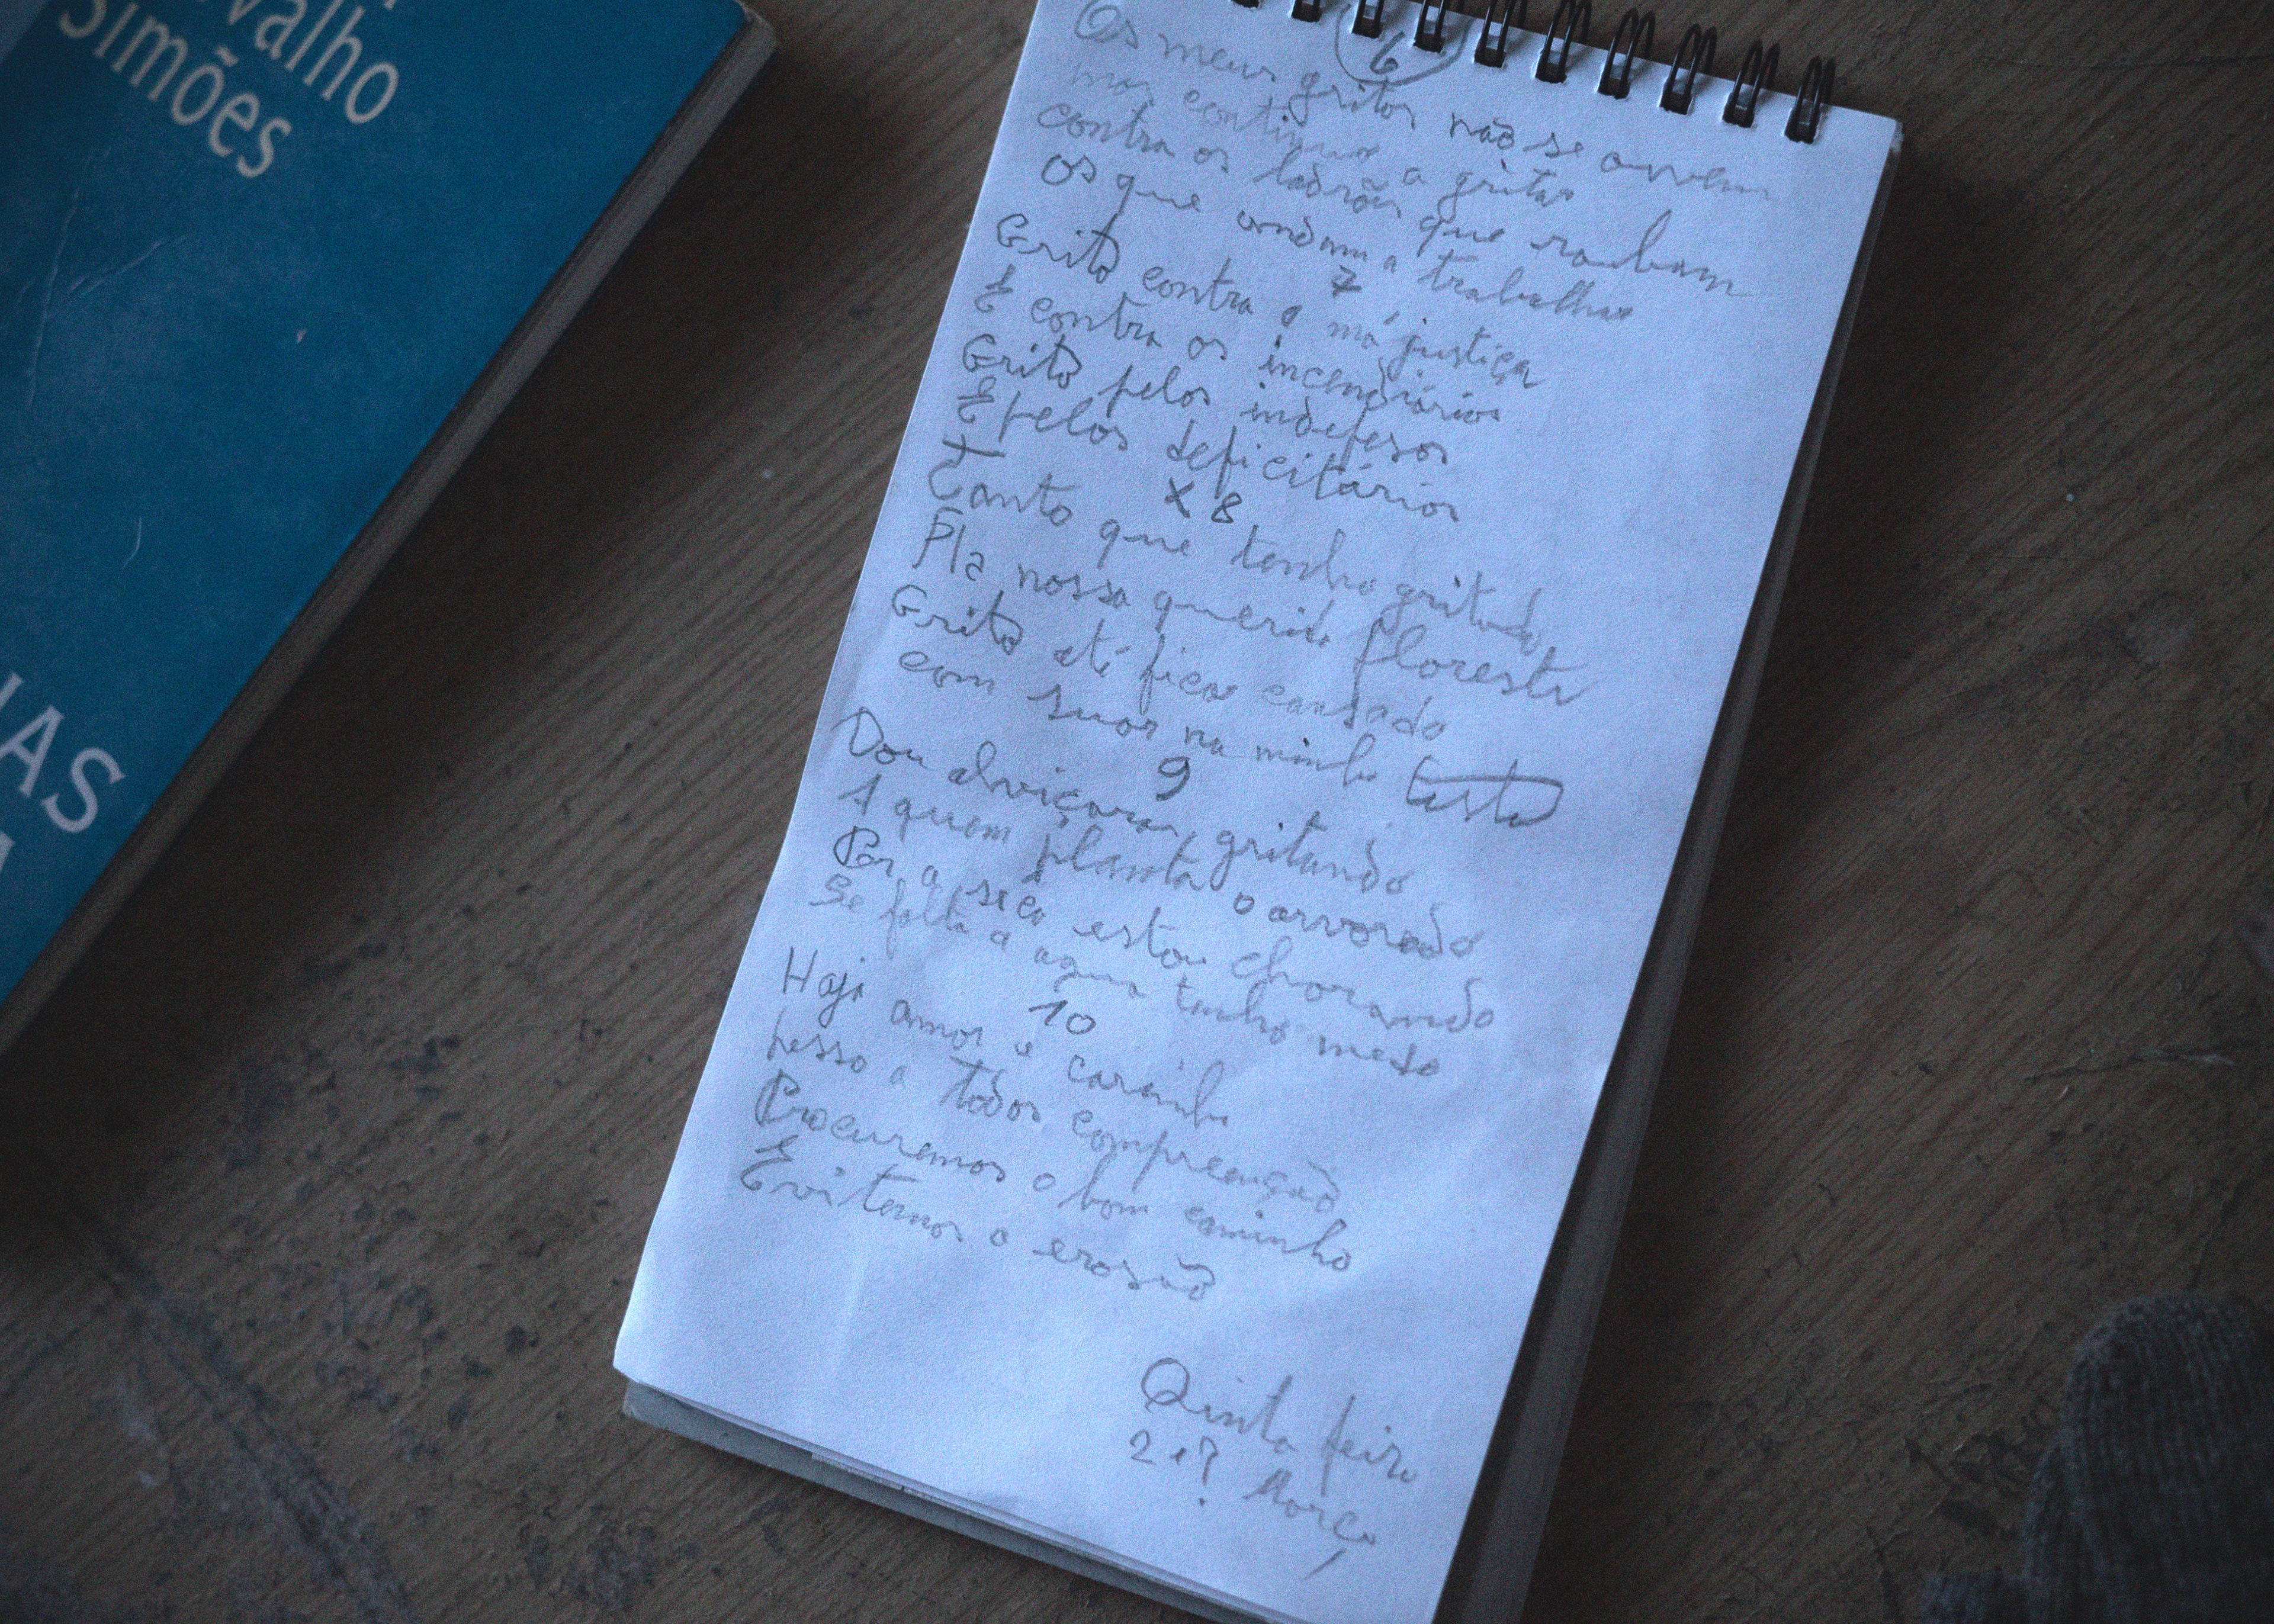 valho
Simões
IAS
6
Os meus gritos não se ouvem
mas continuo a gritar
contra os ladrões que roubam
Os que andam a trabalhar
7
Grito contra a má justiça
E contra os incendiários
Grito pelos indefesos
E pelos deficitários
X 8
Tanto que tenho gritado
Pla nossa querida floresta
Grito até ficar cansado
com suor na minha testa
9
Dou alviçaras, gritando
A quem planta o arvoredo
Por a sêca estou chorando
Se falta a agua tenho medo
10
Haja amor e carinho
pesso a todos compreenção
Procuremos o bom caminho
Evitemos a erosão
Qinta feira
Março